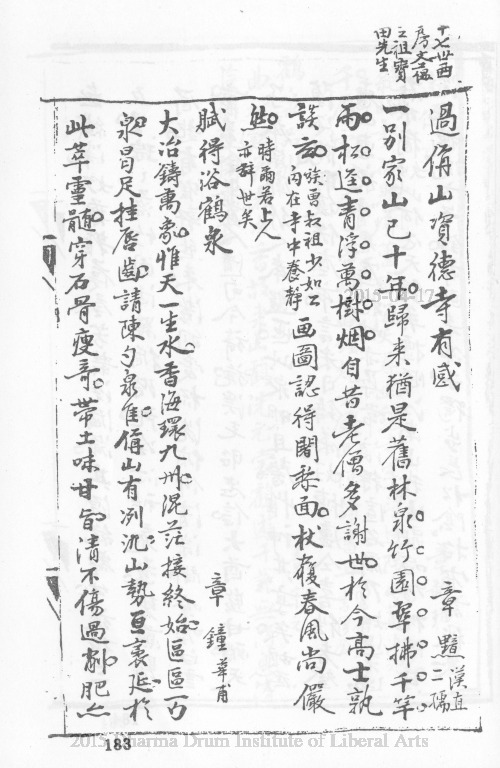 十七世西
房文蔚
之祖寶
田先生
過倂山資德寺有感
章黯漢直
二孺
一別家山已十年歸来猶是舊林泉竹園翠拂千竿
雨松逕青浮萬樹烟自昔老僧多謝世於今高士孰
談玄族曾叔祖少如公
向在寺中養靜
画圖認得闍黎面杖履春風尚儼
然時爾若上人
亦辭世矣
賦得浴鶴泉
章鐘華甫
大冶鑄萬象惟天一生水香海環九州混茫接終始區區一勺
泉曷足挂唇齒請陳勺泉佳倂山有冽氿山勢亘袤延於
此萃靈髓穿石骨瘦奇帶土味甘旨清不傷過削肥亦
183
2015 Dharma Drum Institute of Liberal Arts